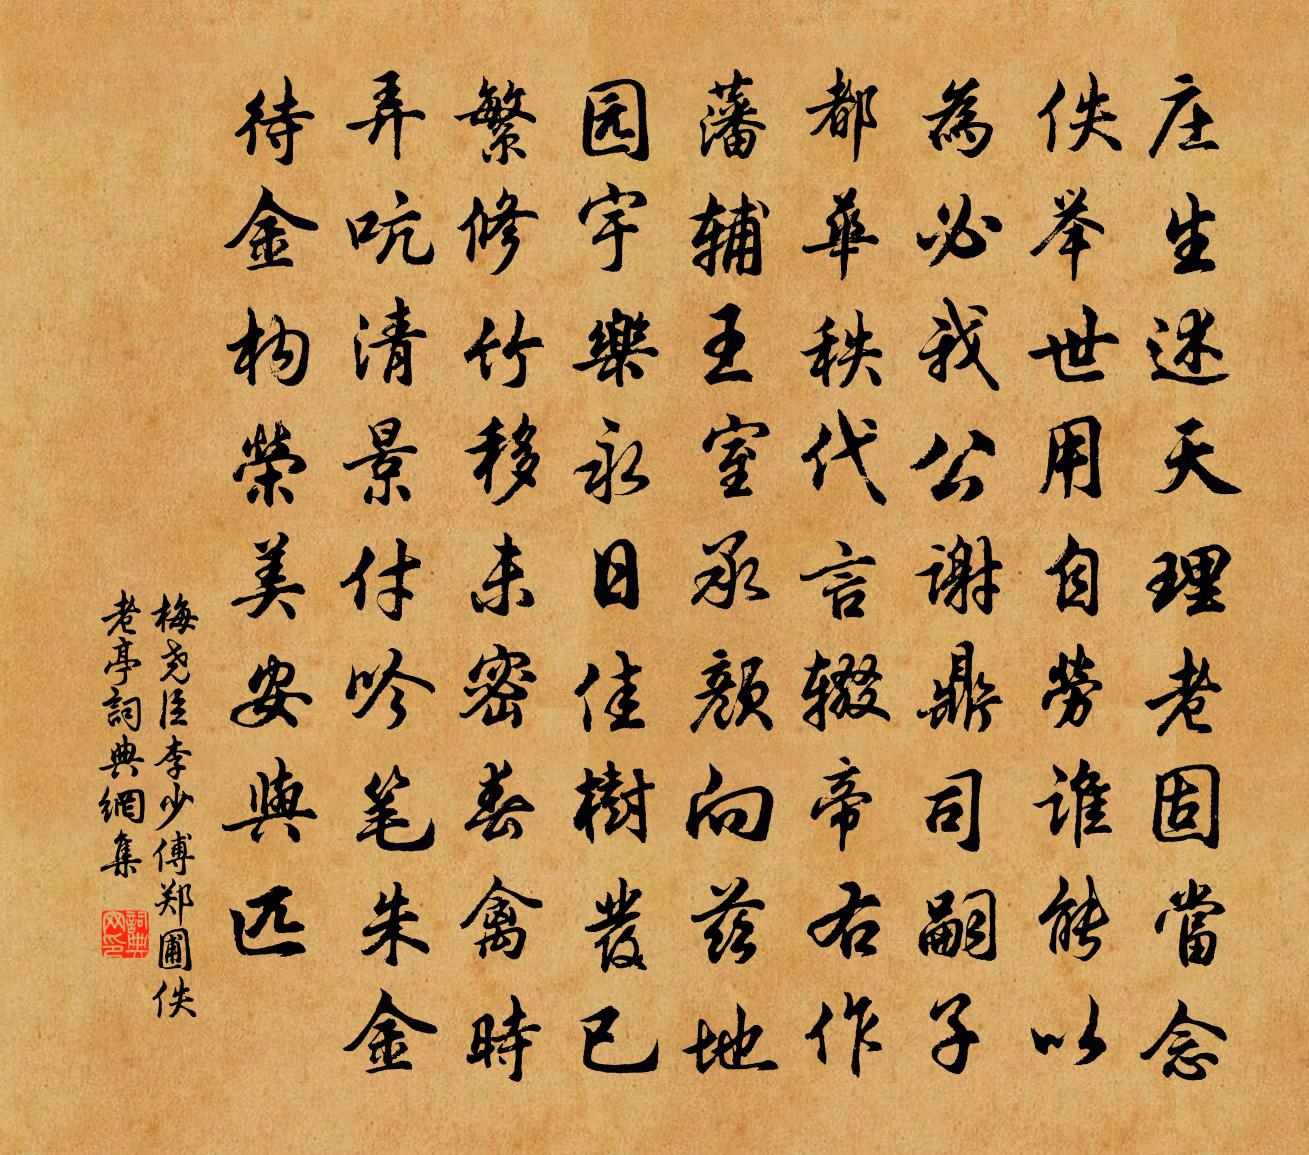 庄生述天理老固當念
佚举世用自劳谁能以
為必我公谢鼎司嗣子
都華秩代言辍帝右作
藩辅王室承颜向兹地
园宇樂永日佳樹發已
繁修竹移未密春禽時
弄吭清景付吟笔朱金
待金构榮美安與匹
梅尧臣李少傅郑圃佚
老亭詞典網集
詞典
网印